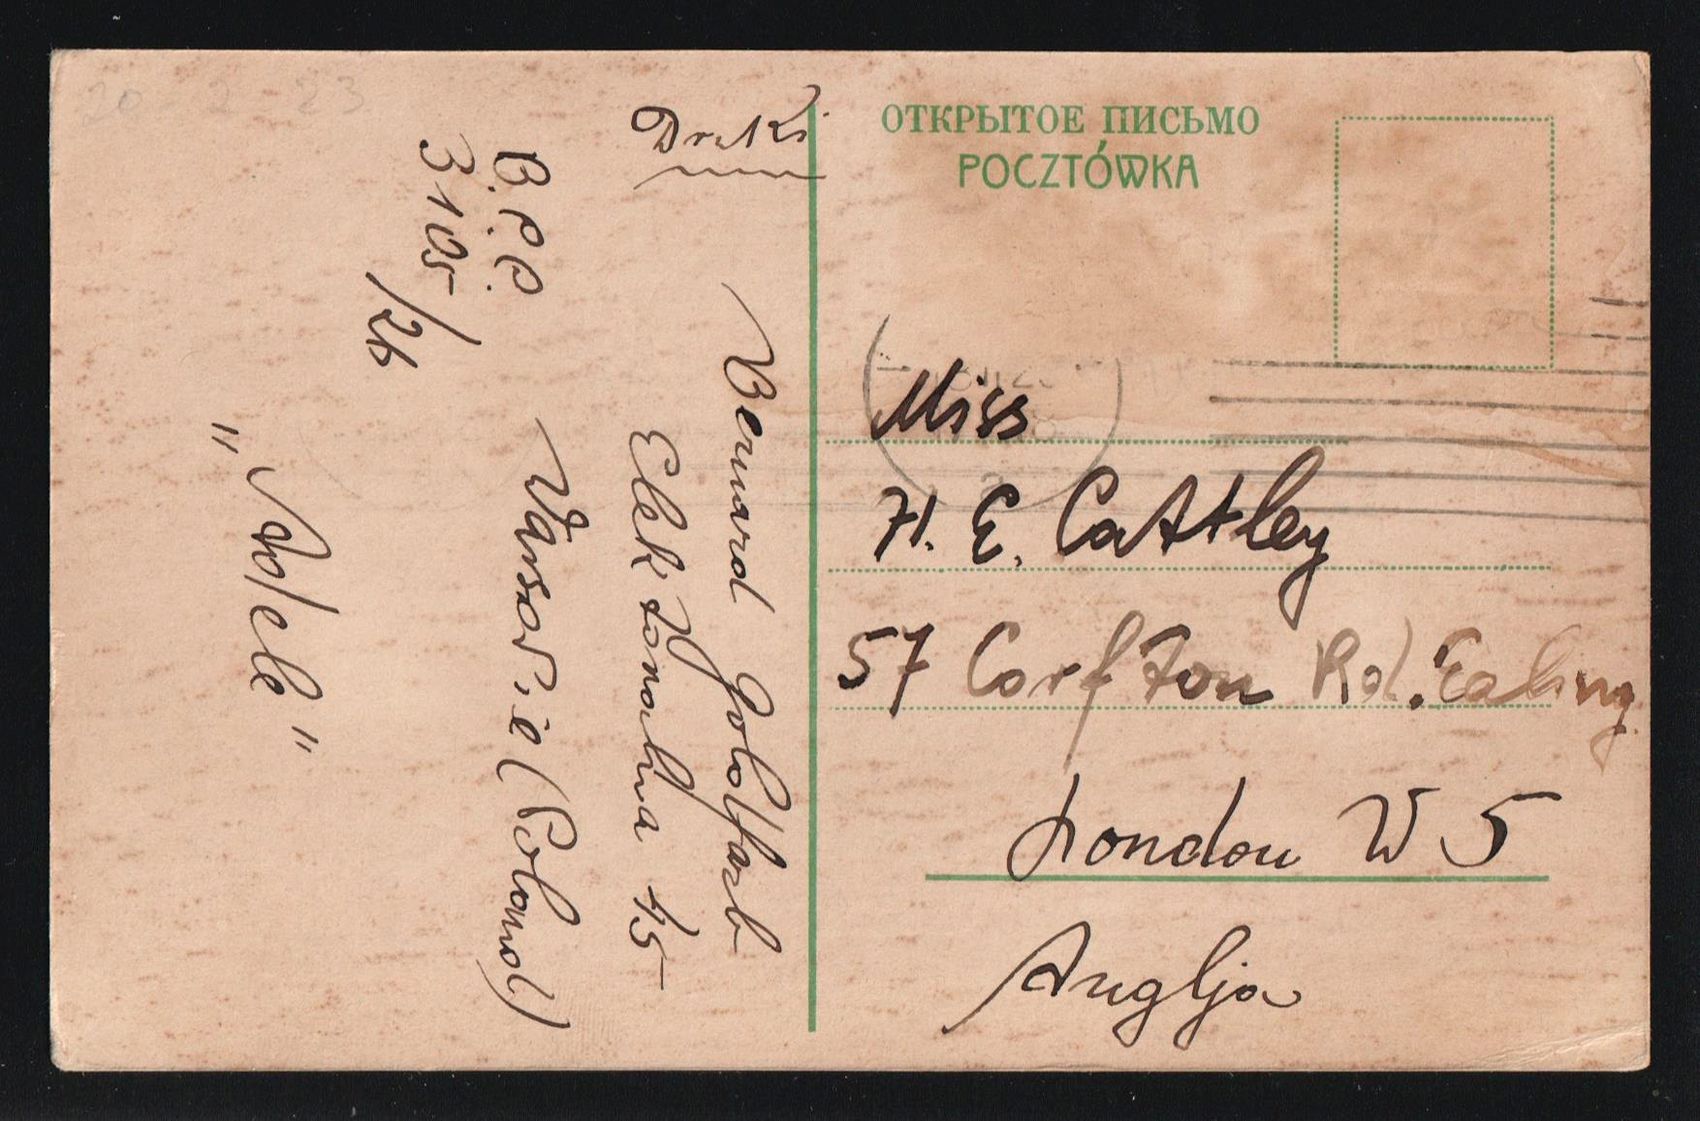 20-2-23
Druki
ОТКРЫТОЕ ПИСЬМО
POCZTÓWKA
B.P.C.
3105/26
Bernard Goldfarb
Elektoralna 45
Varsovie (Poland)
"Adele"
Miss
H. E. Cattley
57 Corfton Rd. Ealing
London W 5
Anglja